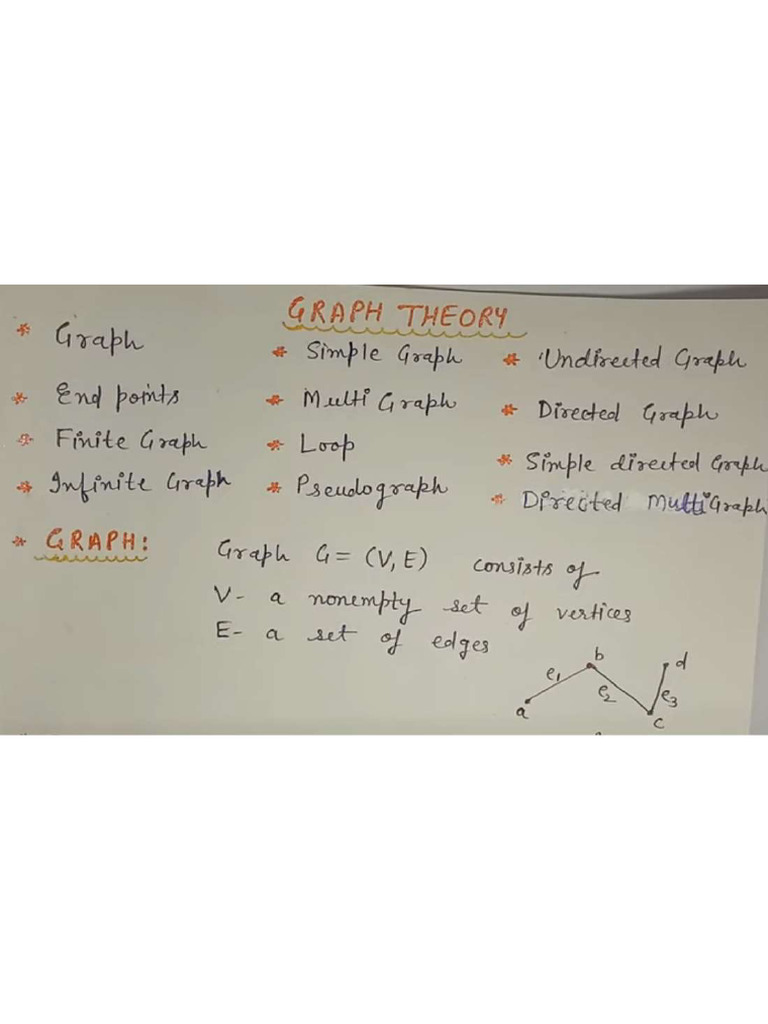 GRAPH THEORY
* Graph
* End points
* Finite Graph
* Infinite Graph
* Simple Graph
* Multi Graph
* Loop
* Pseudograph
* Undirected Graph
* Directed Graph
* Simple directed Graph
* Directed MultiGraph
* GRAPH:
Graph G = (V, E) consists of
V- a nonempty set of vertices
E- a set of edges
a e1 b e2 c e3 d